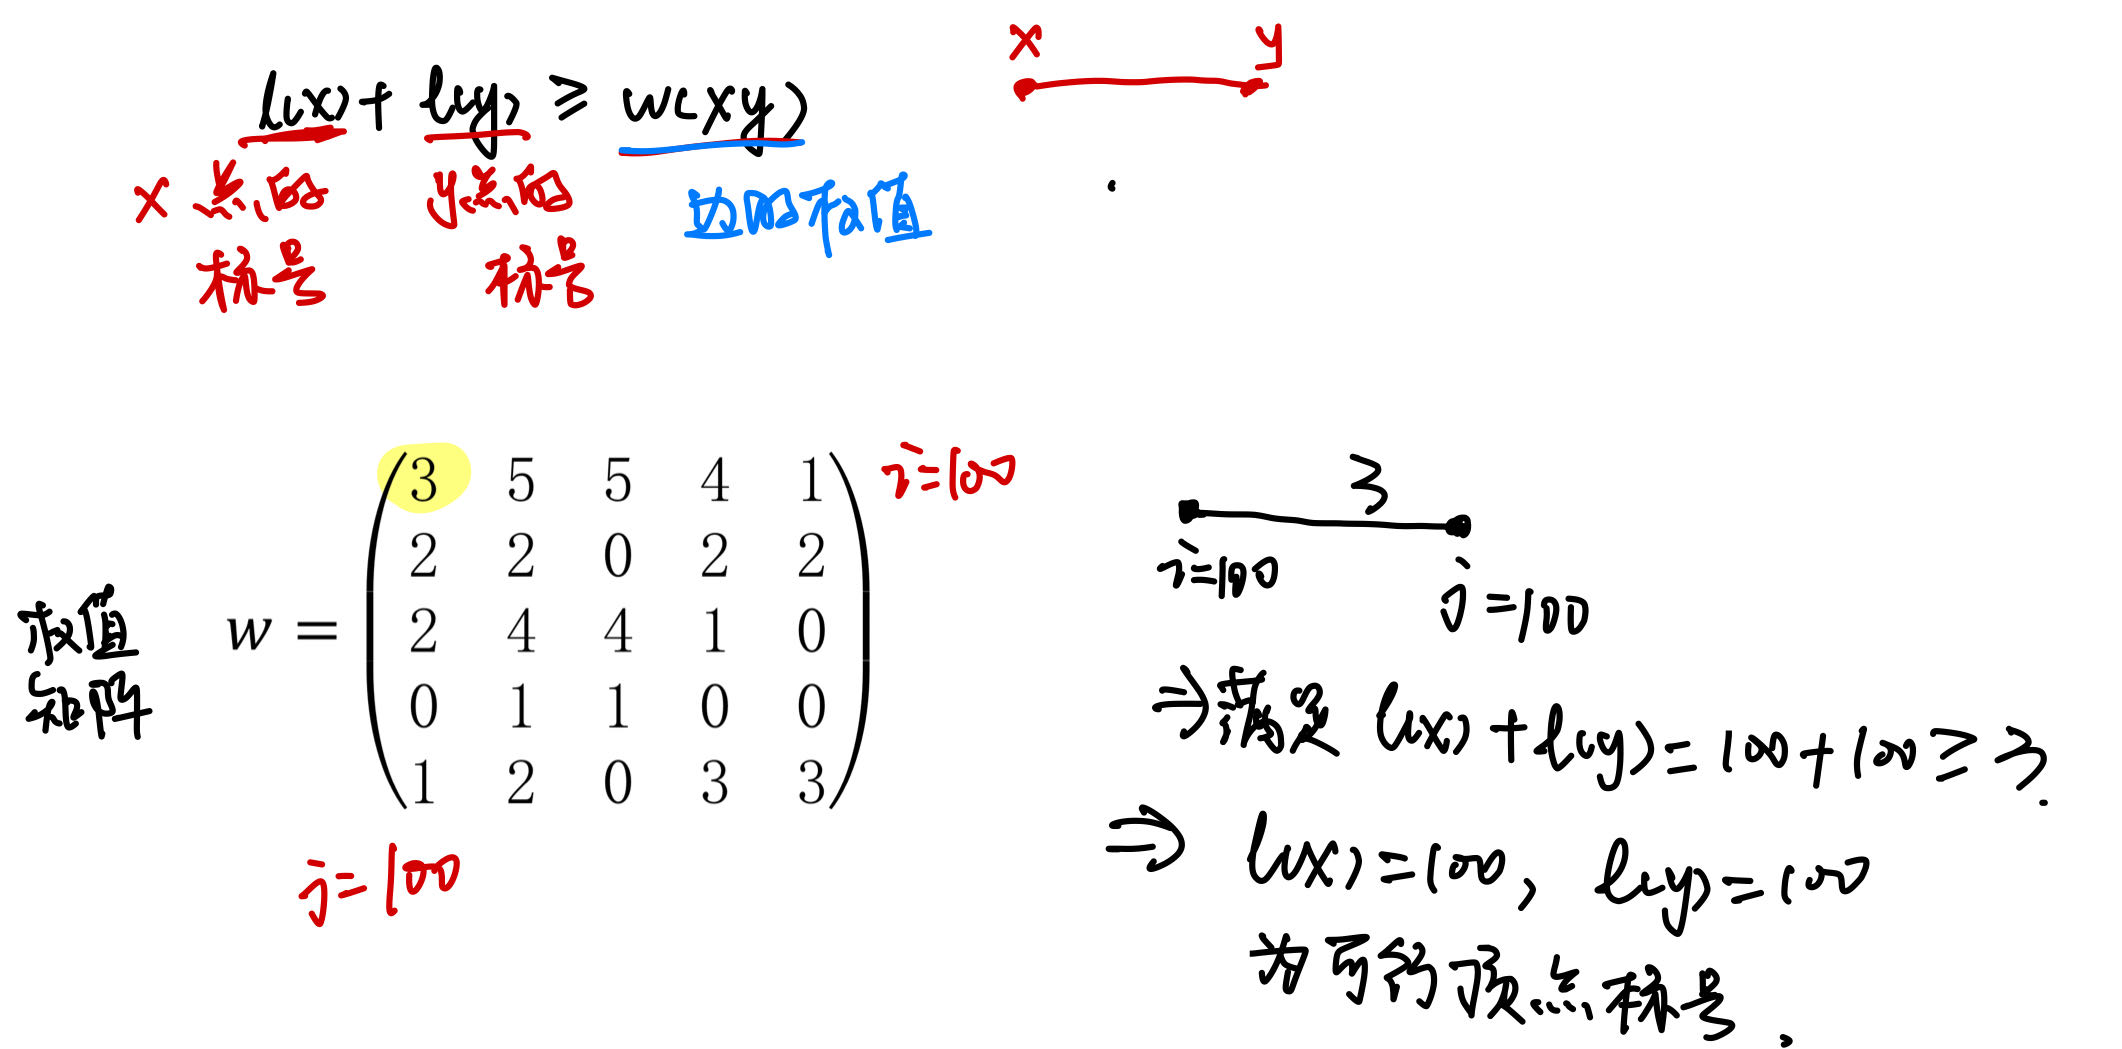 x y
l(x)+l(y)≥w(xy)
x点的 y点的 边的权值
标号 标号
权值矩阵
w =
3 5 5 4 1 i=100
2 2 0 2 2
2 4 4 1 0
0 1 1 0 0
1 2 0 3 3
j=100
3
i=100 j=100
⇒满足 l(x)+l(y)=100+100≥3.
⇒ l(x)=100, l(y)=100
为可行顶点标号.